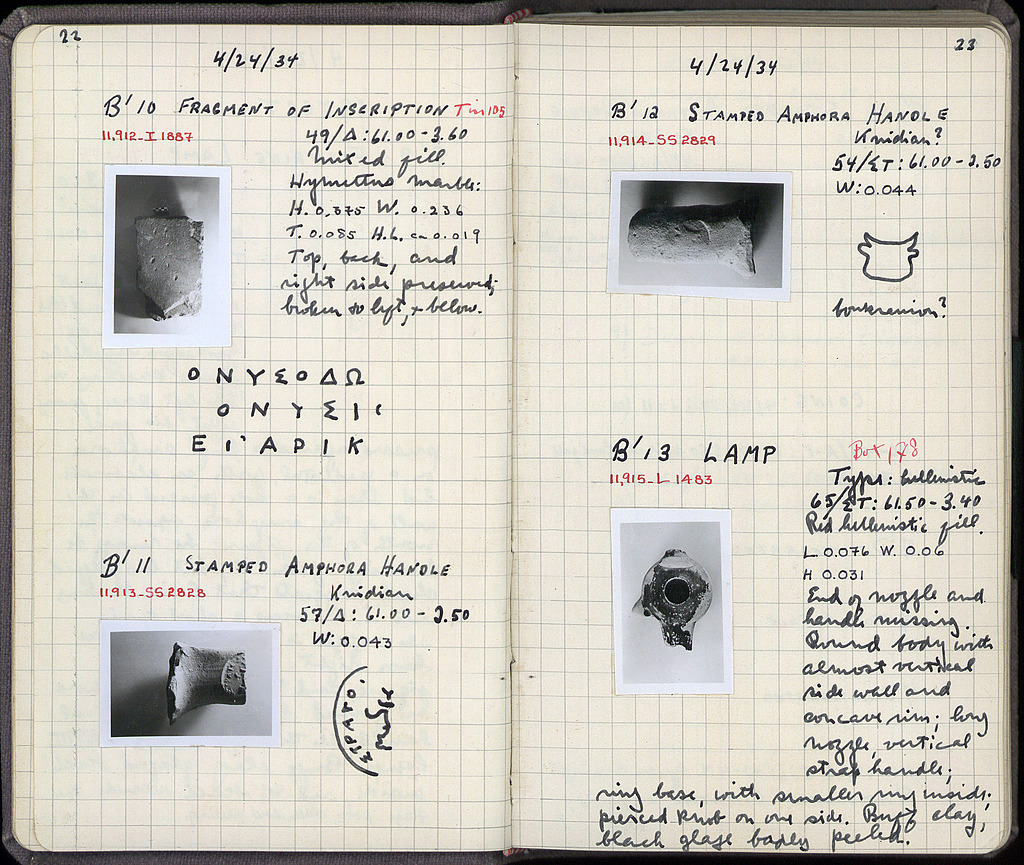 22
4/24/34
B' 10 FRAGMENT OF INSCRIPTION Tin 105
11,912-I 1887
49/Δ: 61.00-3.60
Mixed fill.
Hymettus marble:
H. 0.375 W. 0.236
T. 0.085 H.L. ca 0.019
Top, back, and
right side preserved;
broken to left, + below.
Ο Ν Υ Σ Ο Δ Ω
Ο Ν Υ Σ Ι
Ε Ι ' Α Ρ Ι Κ
B' 11 STAMPED AMPHORA HANDLE
11,913-SS 2828
Knidian
57/Δ: 61.00-3.50
W: 0.043
ΣΤΡΑΤΟ.
23
4/24/34
B' 12 STAMPED AMPHORA HANDLE
11,914-SS 2829
Knidian?
54/ΣΤ: 61.00-3.50
W: 0.044
boukranion?
B' 13 LAMP
Box 178
11,915-L 1483
Type: hellenistic
65/ΣΤ: 61.50-3.40
Red hellenistic fill.
L 0.076 W. 0.06
H 0.031
End of nozzle and
handle missing.
Round body with
almost vertical
side wall and
concave rim; long
nozzle, vertical
strap handle;
ring base, with smaller ring inside.
pierced knob on one side. Buff clay,
black glaze badly peeled.